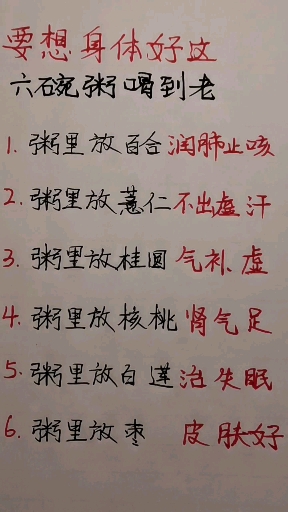 要想身体好这
六碗粥喝到老
1. 粥里放百合润肺止咳
2. 粥里放薏仁不出虚汗
3. 粥里放桂圆气补虚
4. 粥里放核桃肾气足
5. 粥里放白莲治失眠
6. 粥里放枣 皮肤好